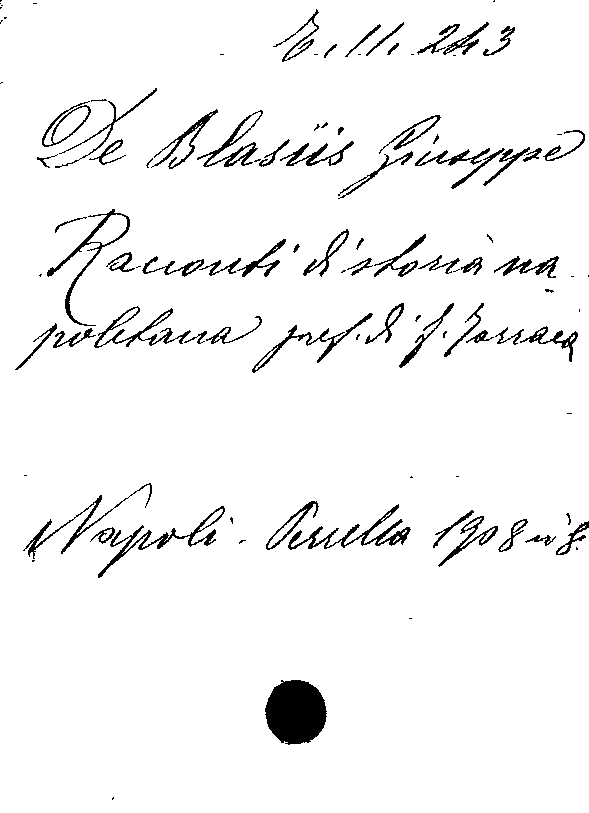 E. 11. 243
De Blasiis Giuseppe
Racconti di storia na
poletana pref. di f. Torraca
Napoli - Perrella 1908 in 8.